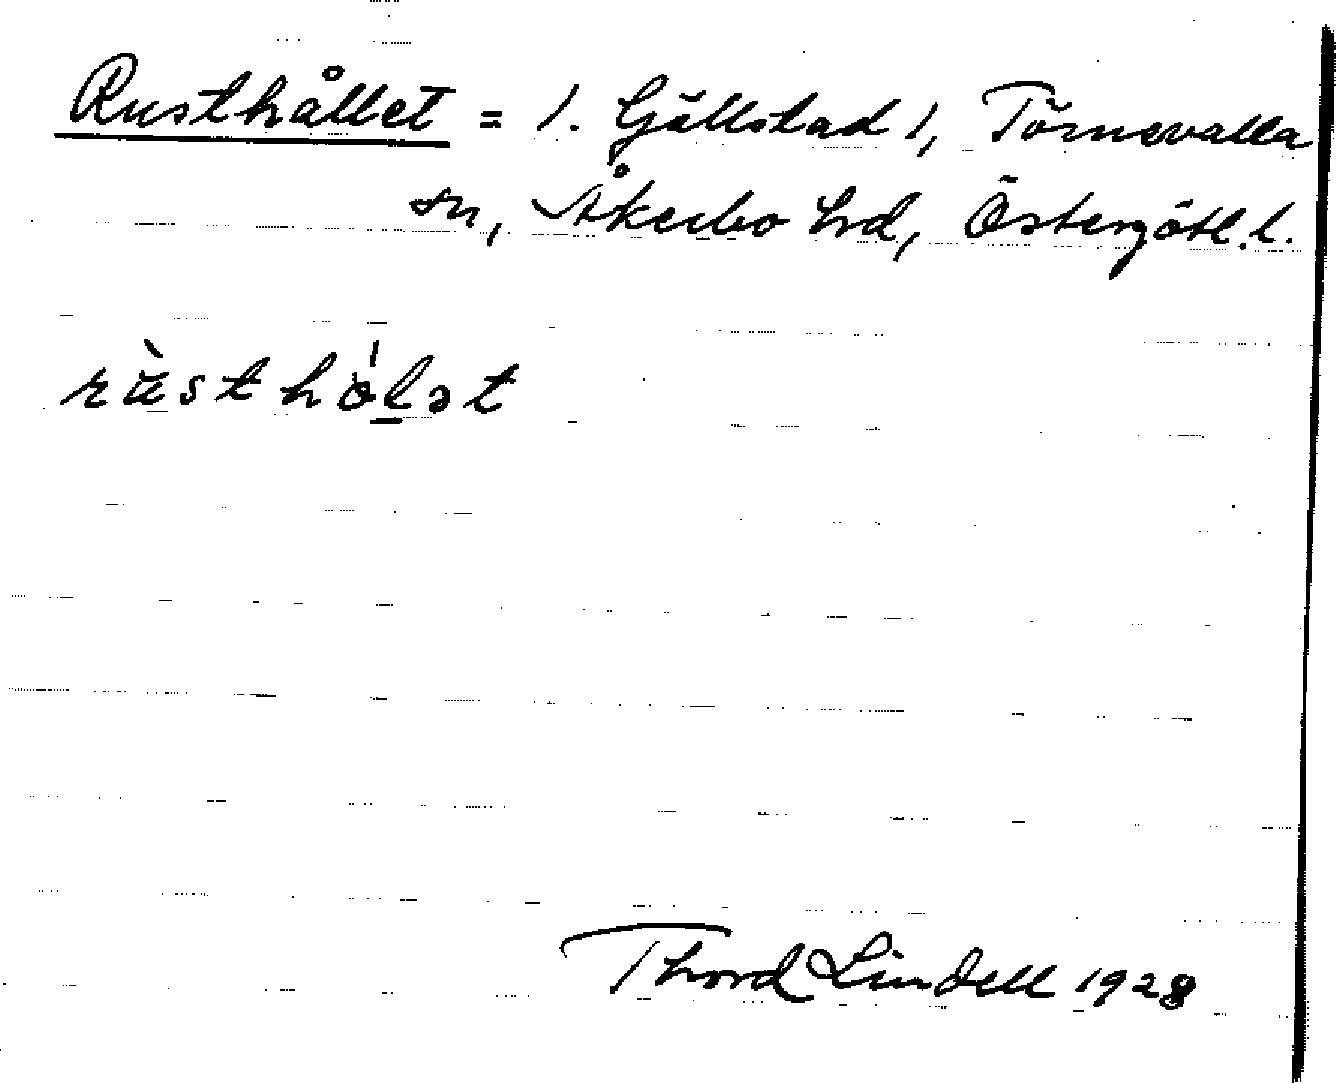 Rusthållet = 1. Gällstad 1, Törnevalla
sn, Åkerbo hd, Östergötl. l.
rùsthó̱lət
Thord Lindell 1928